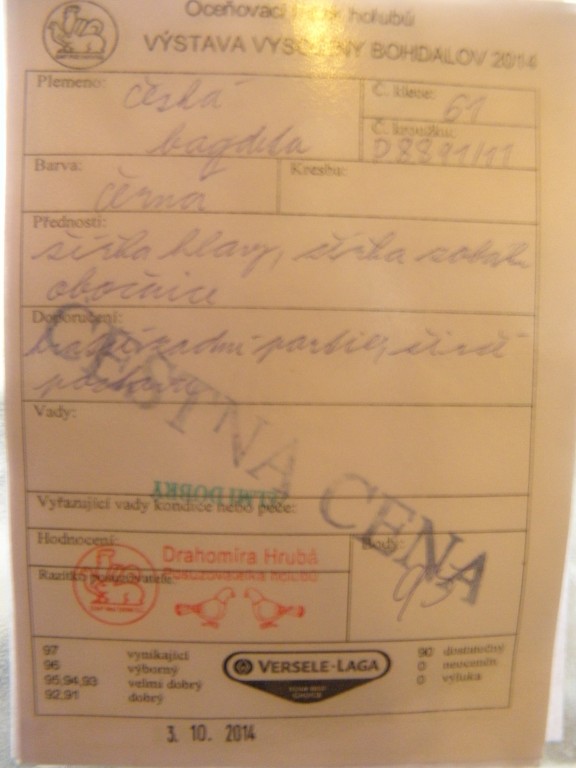 Oceňovací holubů
VÝSTAVA VYSOČINY BOHDALOV 2014
Plemeno: česká
bagdeta
Č. klece: 61
Č. kroužku:
D8891/11
Barva: černá
Kresba:
Přednosti:
šířka hlavy, šířka zobáku
obočnice
Doporučení:
kratší zadní partie, širší
Vady:
VELMI DOBRÝ
Vyřazující vady kondice nebo péče:
ČESTNÁ CENA
Hodnocení:
Body:
95
Drahomíra Hrubá
Posuzovatelka holubů
Razítko posuzovatele:
97 vynikající
96 výborný
95,94,93 velmi dobrý
92,91 dobrý
VERSELE-LAGA
YOUR BEST
CHOICE
90 dostatečný
0 neoceněn
0 výluka
3. 10. 2014